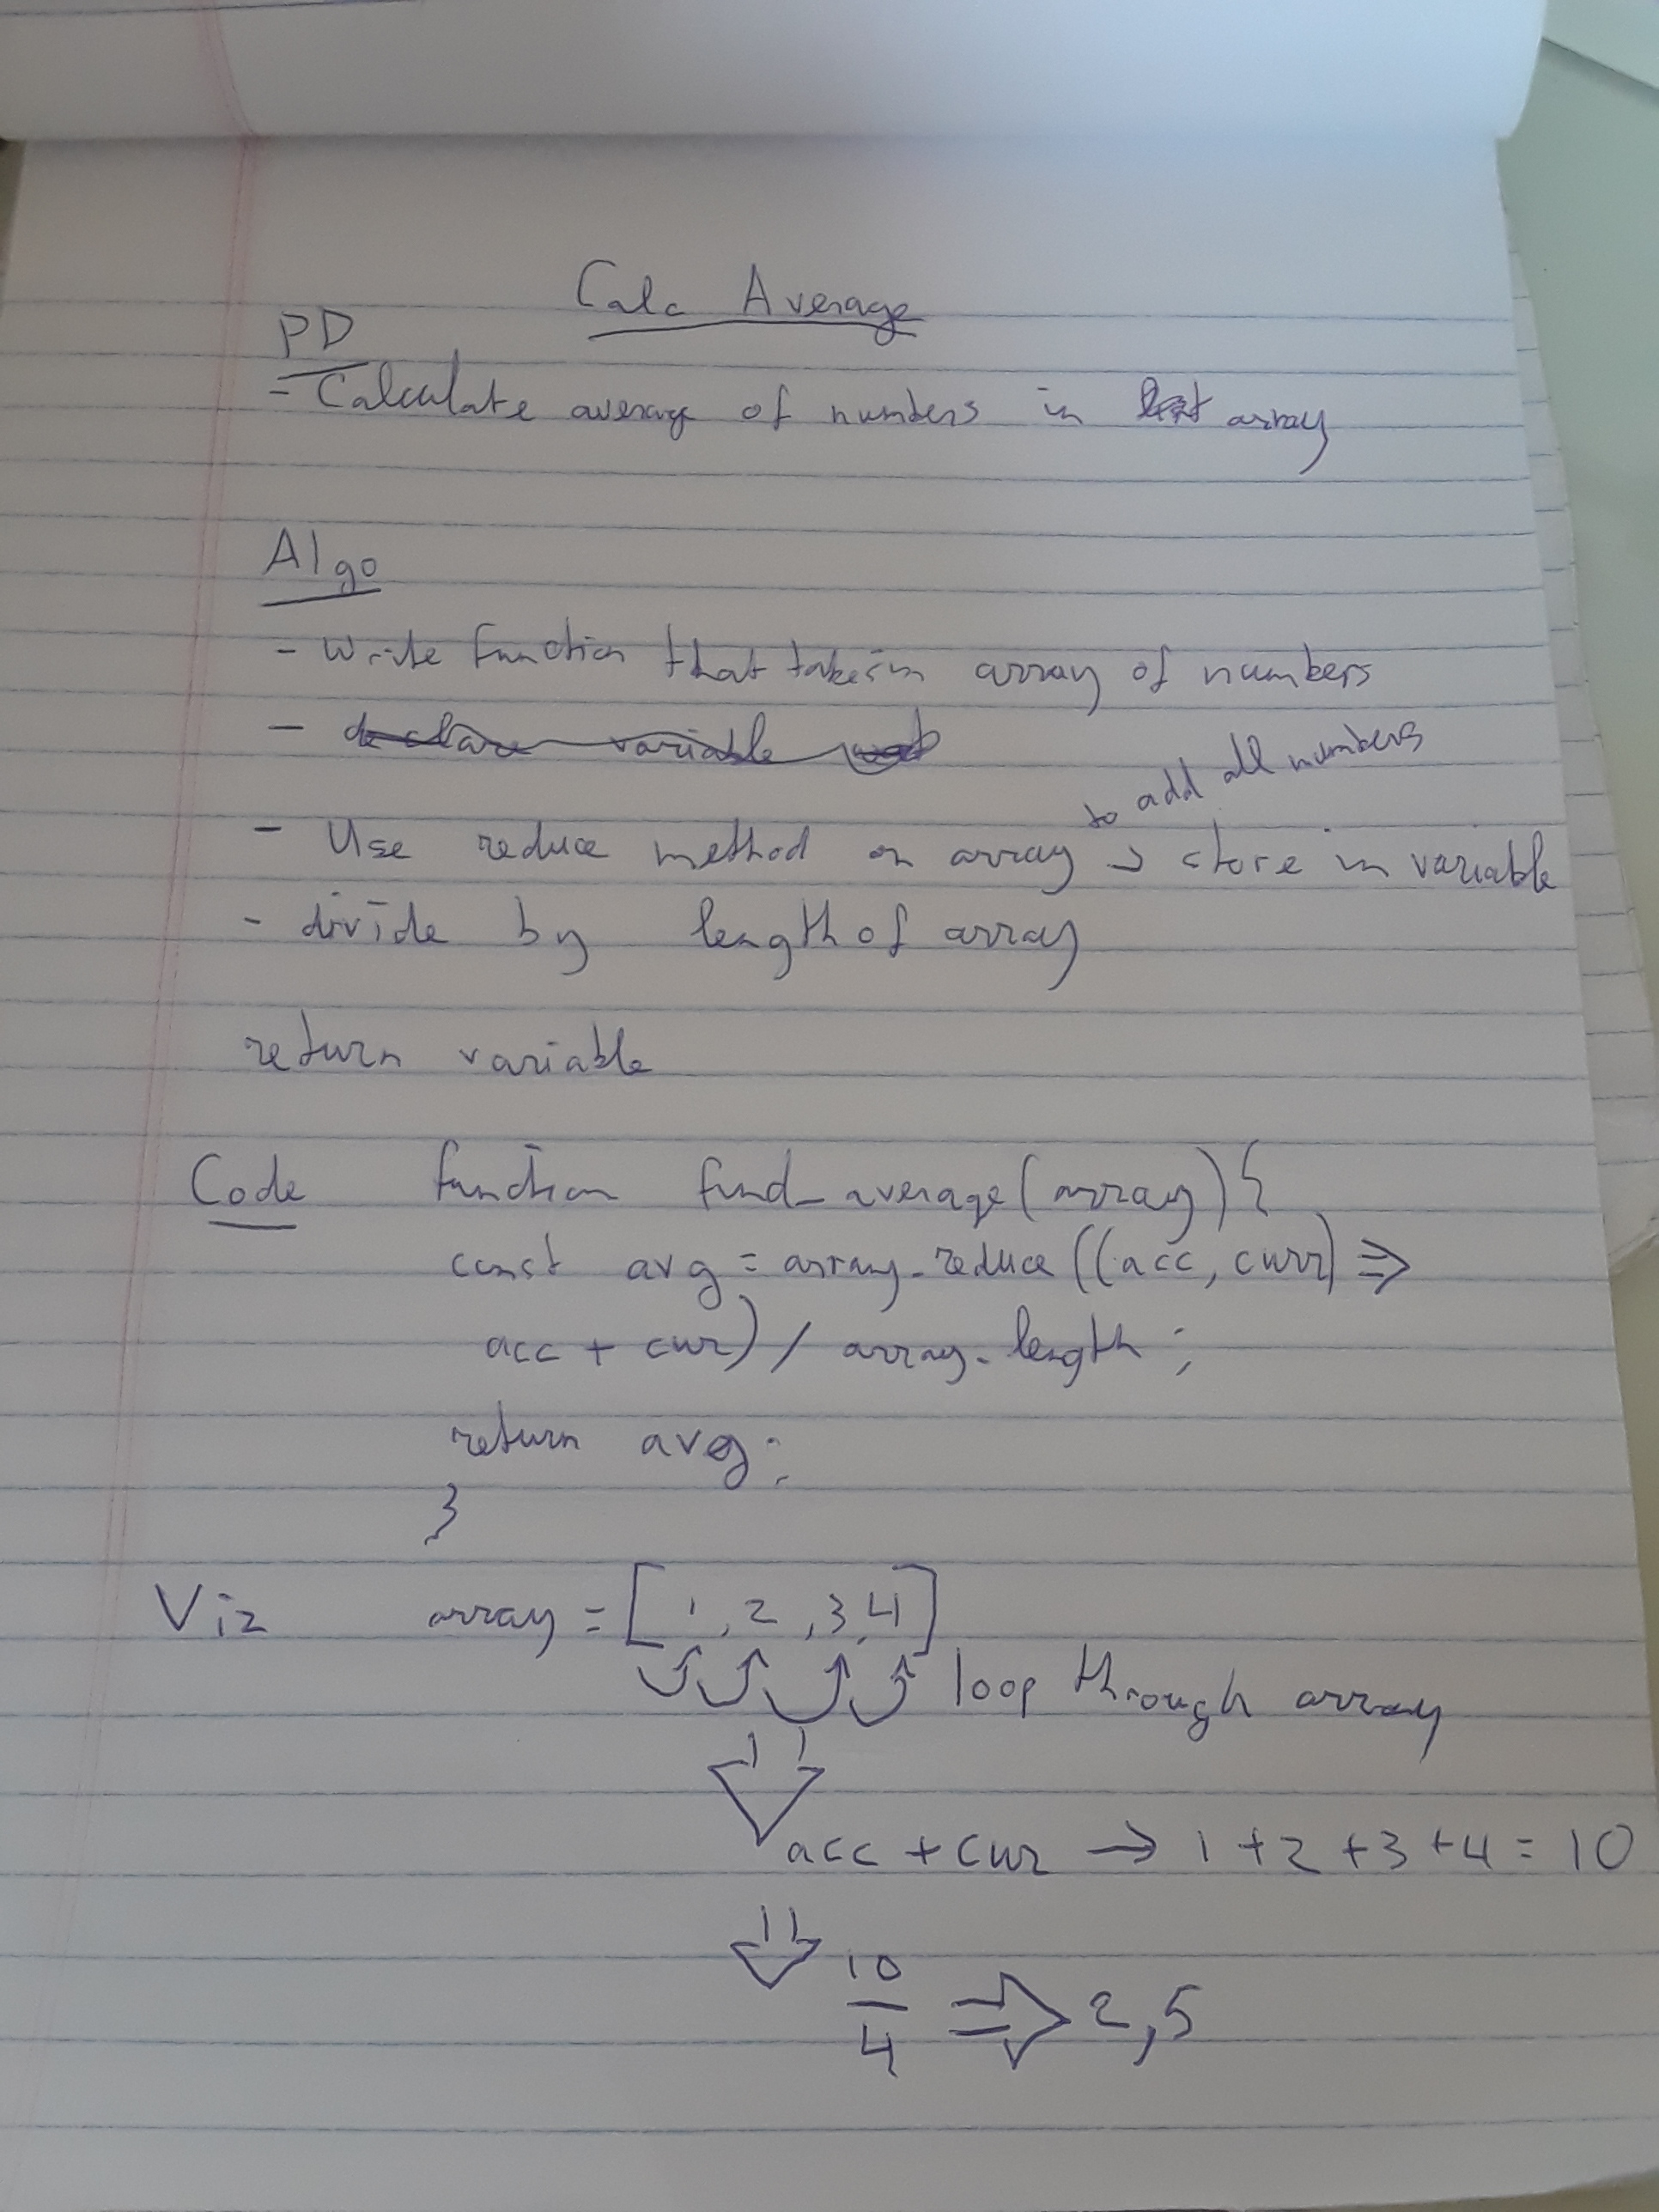 Calc Average
PD
- Calculate average of numbers in array
Algo
- Write function that takes in array of numbers
- declare variable
to add all numbers
- Use reduce method on array → store in variable
- divide by length of array
return variable
Code function find_average(array){
const avg = array.reduce((acc, curr) =>
acc + curr) / array.length;
return avg;
}
Viz array = [1, 2, 3, 4]
loop through array
acc + curr → 1 + 2 + 3 + 4 = 10
10
4 ⇒ 2,5